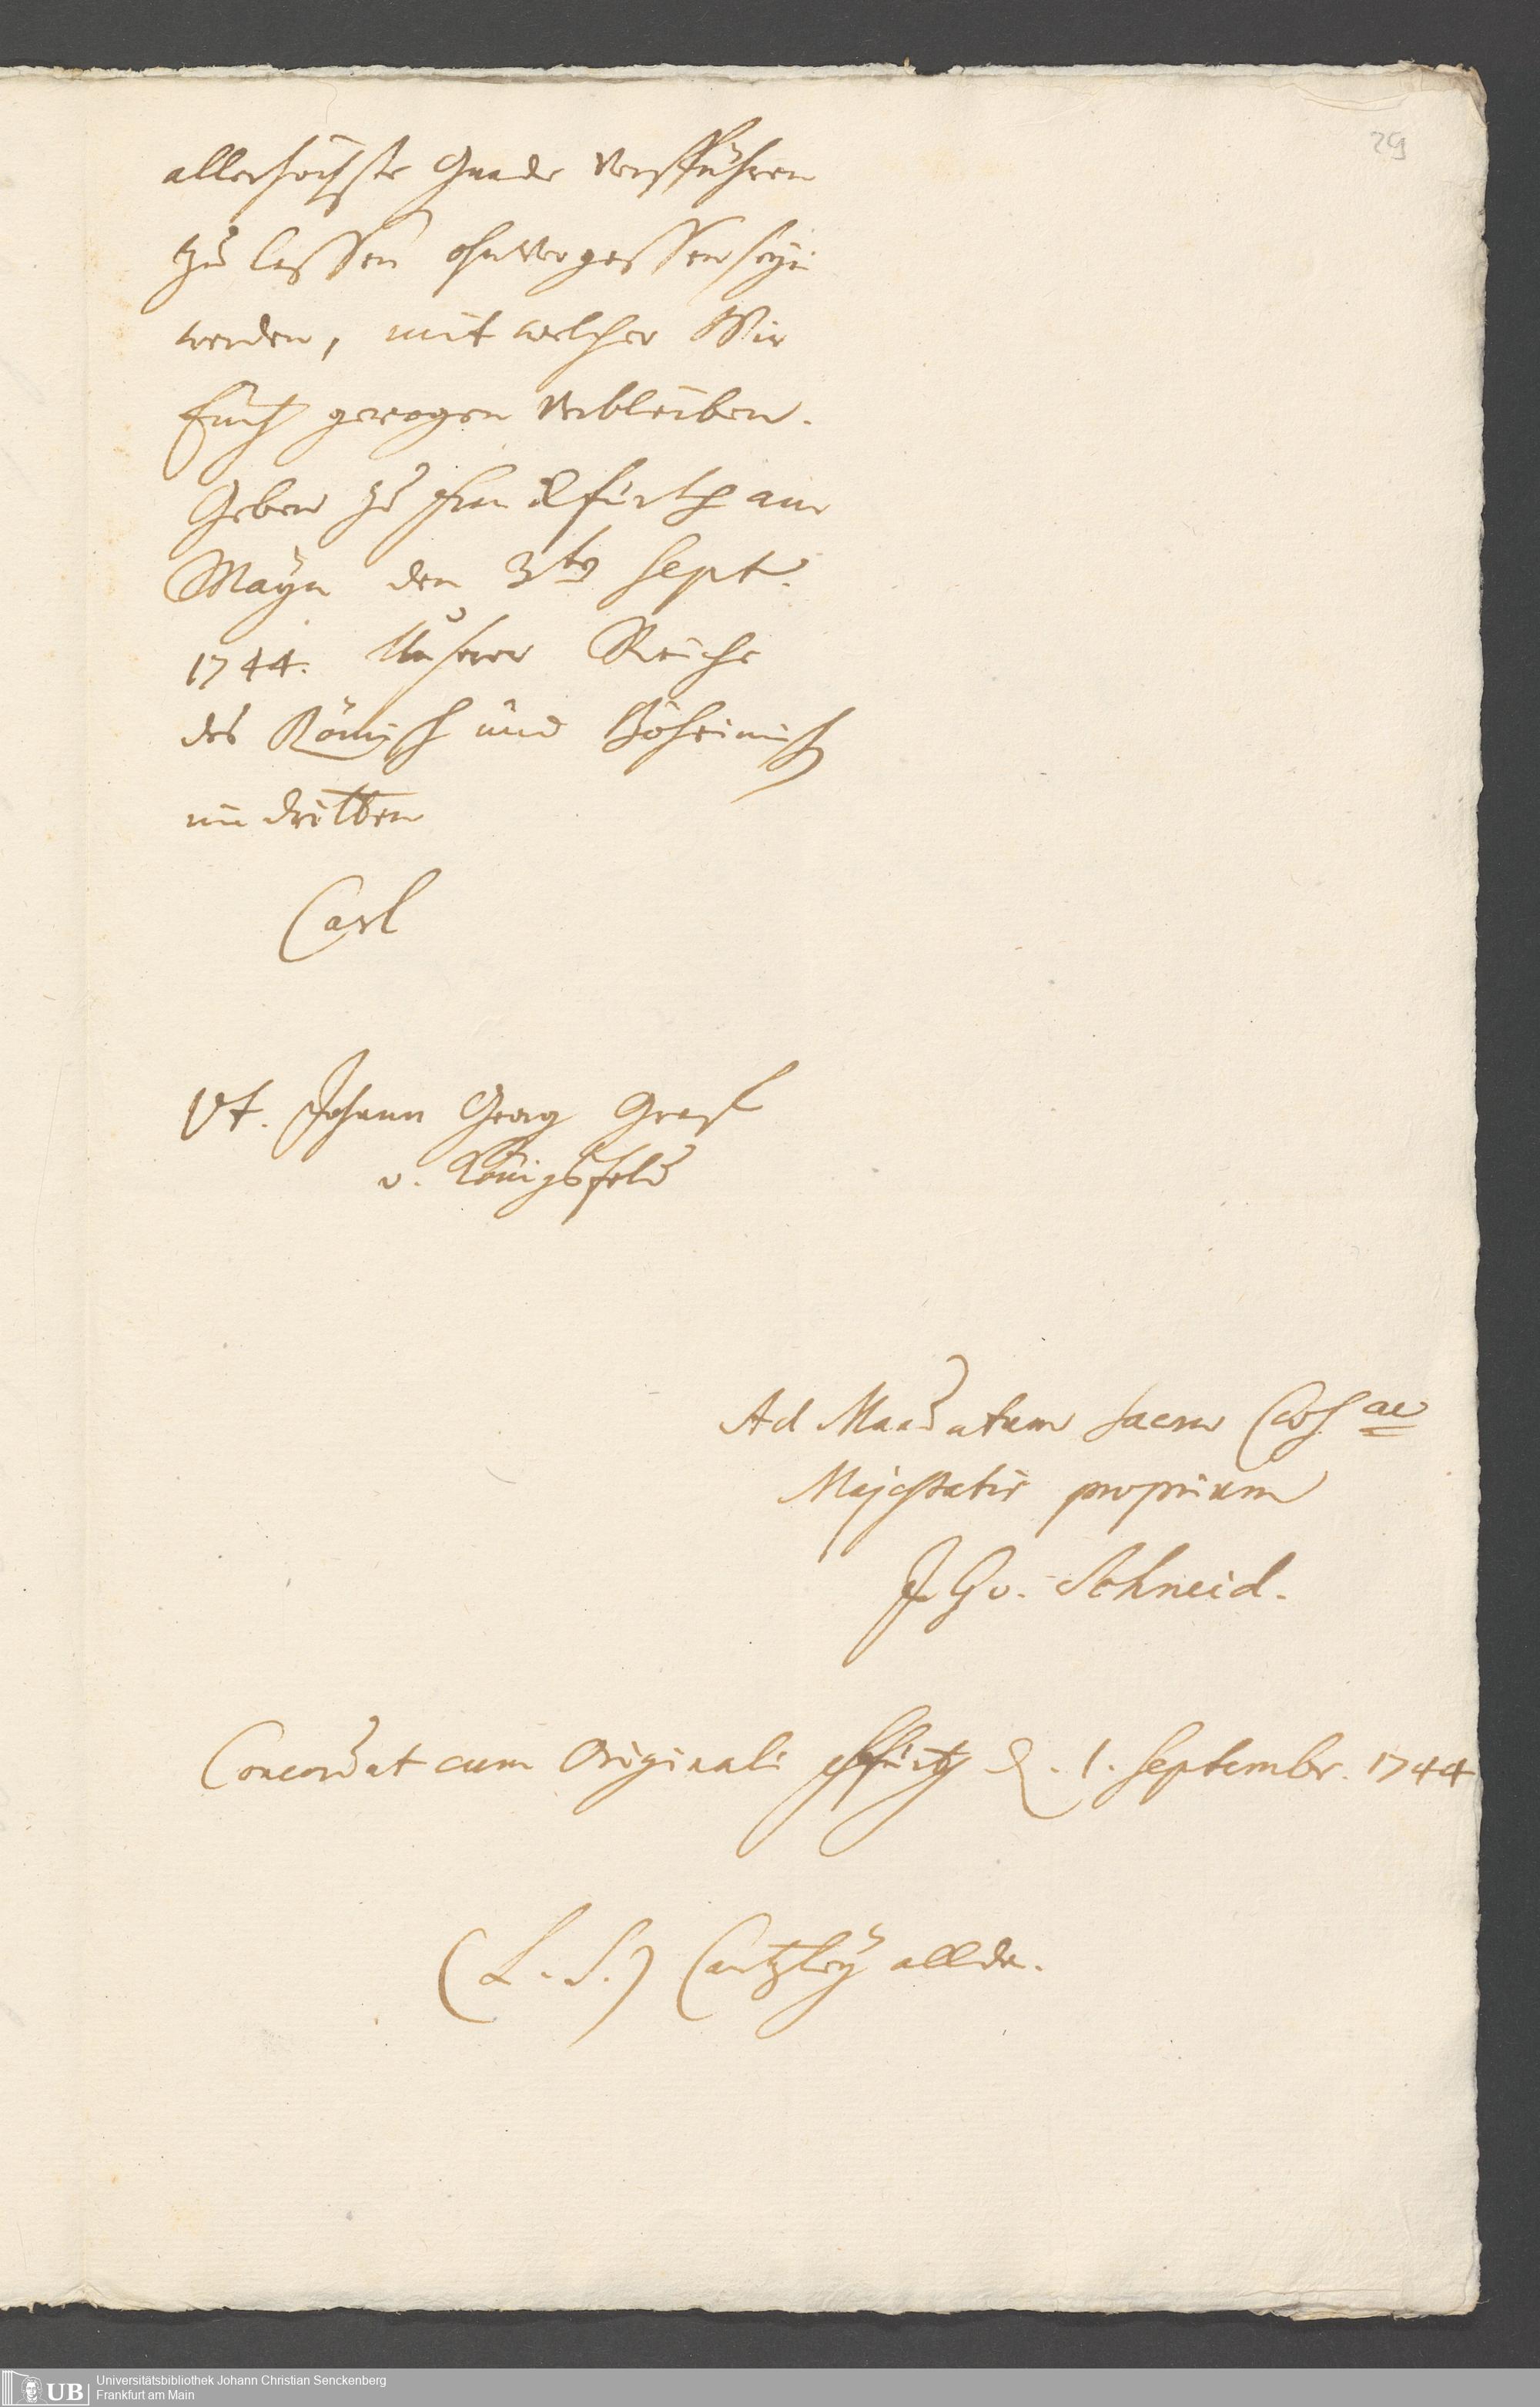 29
allerhöchste Gnade verspühren
zu lassen ohnvergessen seyn
werden, mit welcher Wir
Euch gewogen verbleiben.
Geben zu Franckfurth am
Mayn den 3ten Sept.
1744. Unserer Reiche
des Römisch und Böheimisch
im dritten
Carl
Vt. Johann Georg Graf
v. Königsfeld
Ad Mandatum Sacræ Cæs.ae
Majestatis proprium
J. G. v. Schneid.
Concordat cum Originali Ffurth d. 1. Septembr. 1744
(L. S.) Cantzley allda.
UB Universitätsbibliothek Johann Christian Senckenberg
Frankfurt am Main